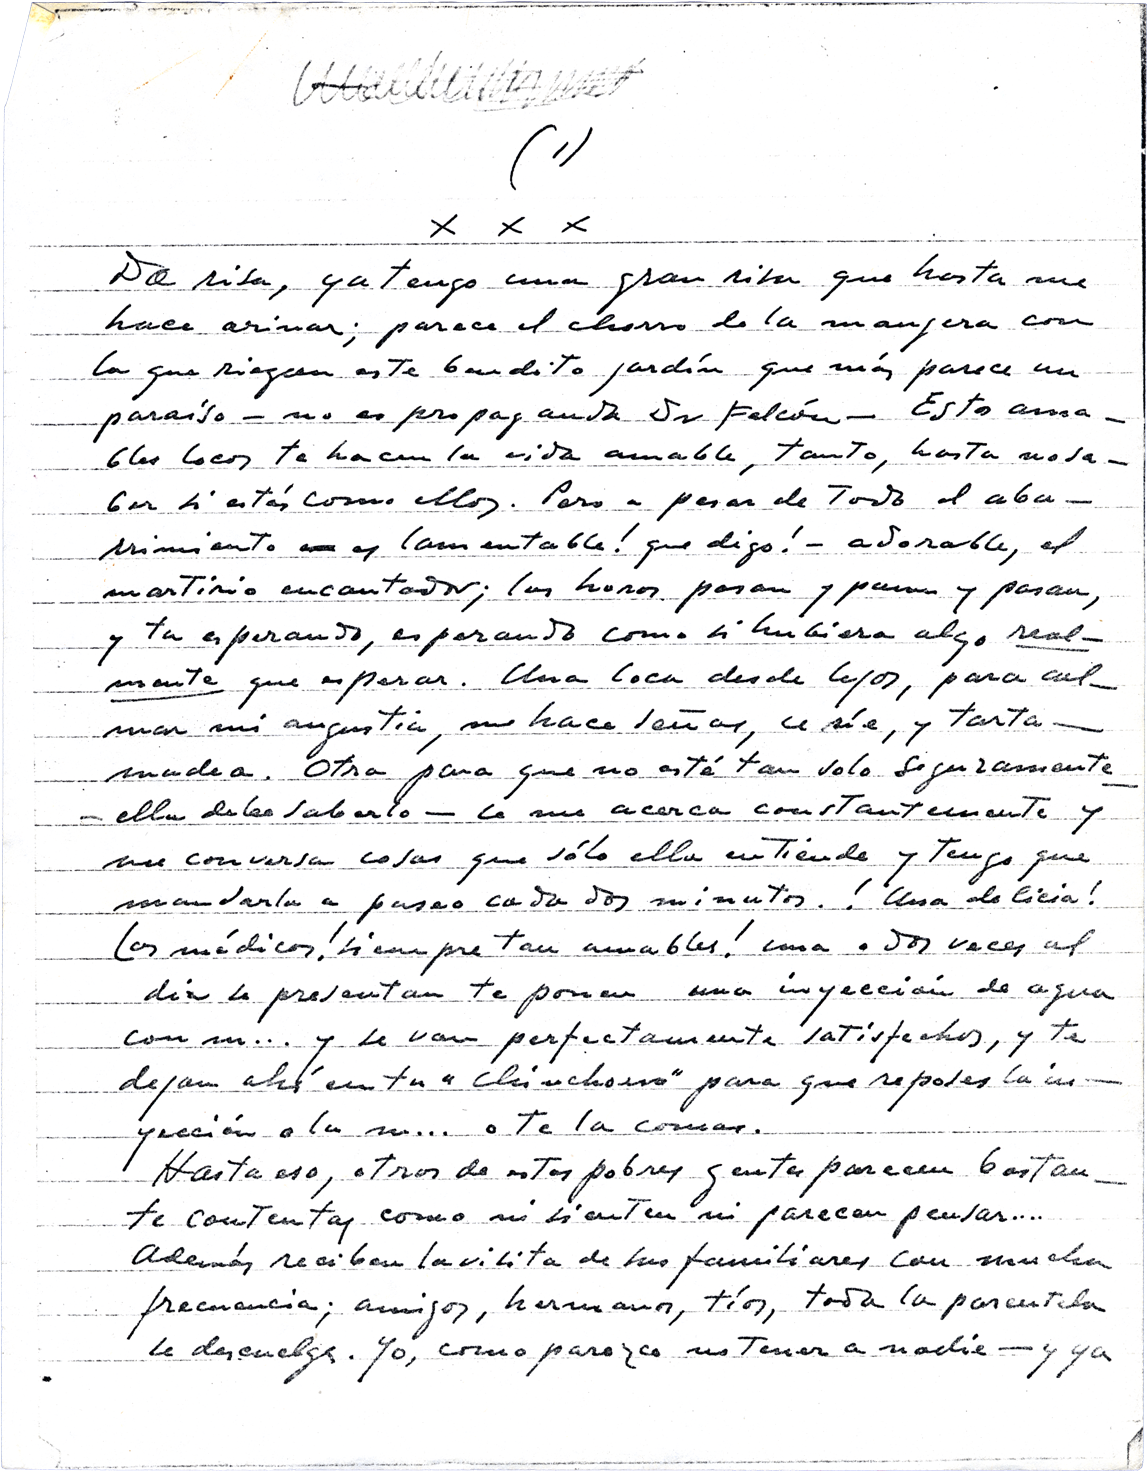 (1)
x x x
Da risa, ya tengo una gran risa que hasta me
hace orinar; parece el chorro de la mangera con
la que riegan este bendito jardín que más parece un
paraíso — no es propaganda Dr Falcón — Estos ama-
bles locos te hacen la vida amable, tanto, hasta no sa-
ber si estás como ellos. Pero a pesar de todo el abu-
rrimiento es lamentable! que digo! — adorable, el
martirio encantador; las horas pasan y pasan y pasan,
y tu esperando, esperando como si hubiera algo real-
mente que esperar. Una loca desde lejos, para cal-
mar mi angustia, me hace señas, se ríe, y tarta-
mudea. Otra para que no esté tan solo seguramente
— ella debe saberlo — se me acerca constantemente y
me conversa cosas que sólo ella entiende y tengo que
mandarla a paseo cada dos minutos. ! Una delicia!
Los médicos! siempre tan amables! una o dos veces al
día se presentan te ponen una inyección de agua
con m... y se van perfectamente satisfechos, y te
dejan ahí en tu "chinchorro" para que reposes la in-
yección o la m... o te la comas.
Hasta eso, otros de estas pobres gentes parecen bastan-
te contentas como ni sienten ni parecen pensar....
Además reciben la visita de sus familiares con mucha
frecuencia; amigos, hermanos, tíos, toda la parentela
se descuelga. Yo, como parezco no tener a nadie — y ya